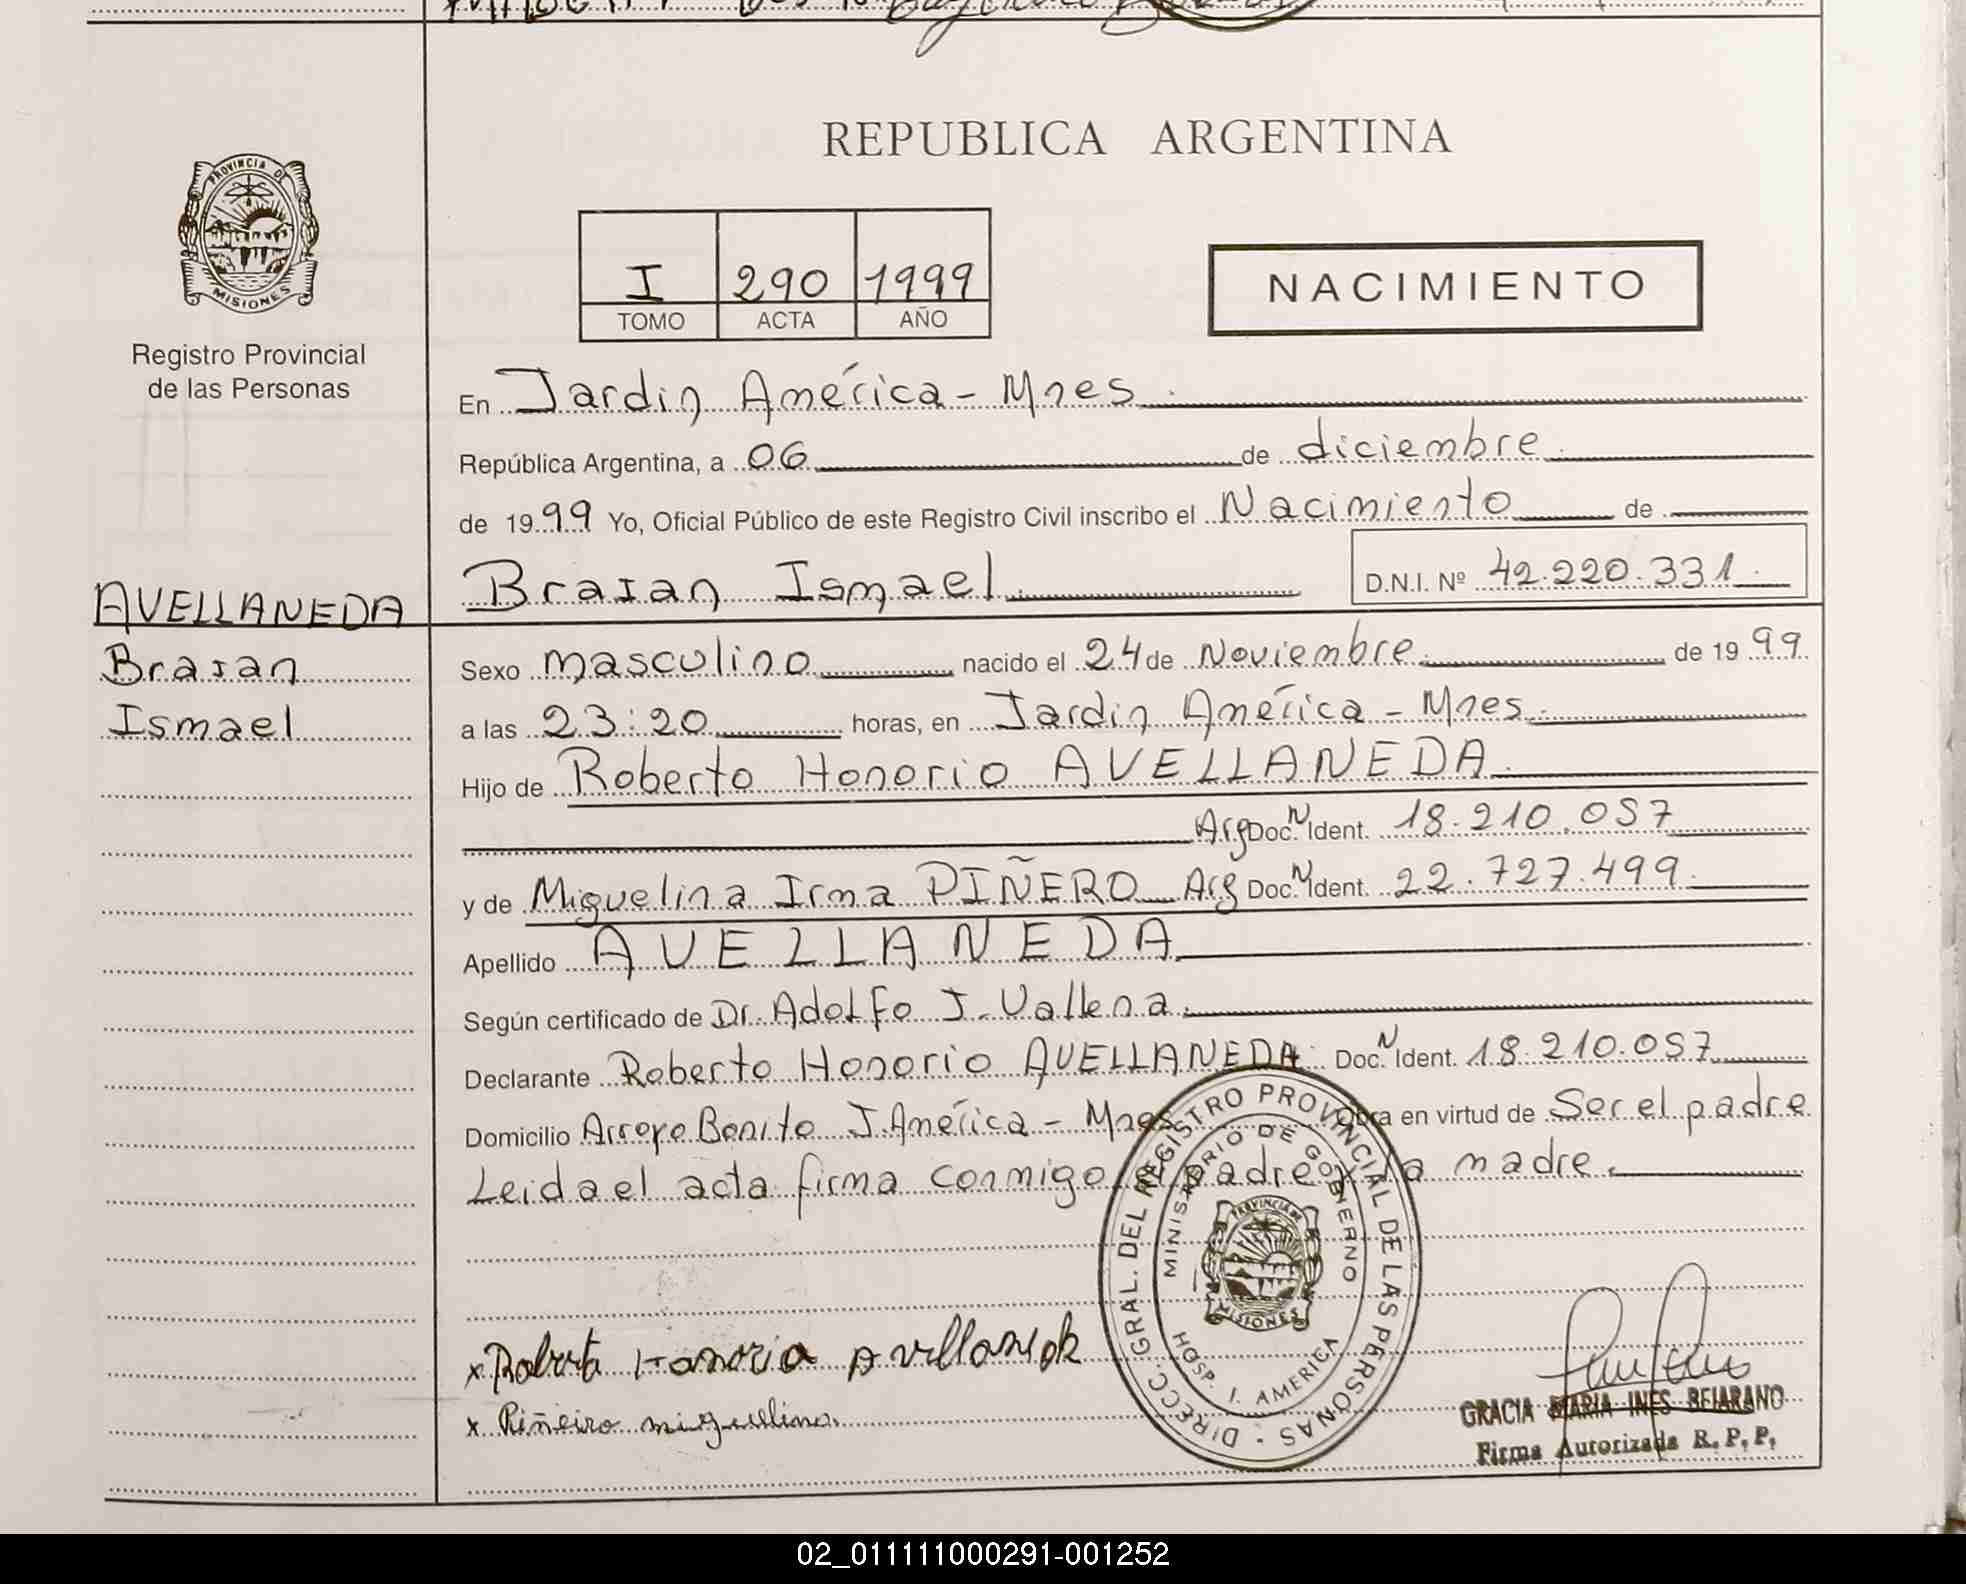 REPUBLICA ARGENTINA
PROVINCIA DE
MISIONES
Registro Provincial
de las Personas
I 290 1999
TOMO ACTA AÑO
NACIMIENTO
En Jardin América - Mnes
República Argentina, a 06 de diciembre
de 1999 Yo, Oficial Público de este Registro Civil inscribo el Nacimiento de
Braian Ismael D.N.I. Nº 42.220.331
AVELLANEDA
Braian
Ismael
Sexo masculino nacido el 24 de Noviembre de 1999
a las 23:20 horas, en Jardin América - Mnes
Hijo de Roberto Honorio AVELLANEDA
Arg Doc. N Ident. 18.210.057
y de Miguelina Irma PIÑERO Arg Doc. N Ident. 22.727.499
Apellido AVELLANEDA
Según certificado de Dr. Adolfo J. Vallena
Declarante Roberto Honorio AVELLANEDA Doc. N Ident. 18.210.057
Domicilio Arroyo Bonito J. América - Mnes Obra en virtud de Ser el padre
Leida el acta firma conmigo el padre y la madre.
DIRECC. GRAL. DEL REGISTRO PROVINCIAL DE LAS PERSONAS
MINISTERIO DE GOBIERNO
PROVINCIA DE
MISIONES
HOSP. I. AMERICA
x Roberto Honorio Avellaneda
x Piñeiro miguelina
GRACIA MARIA INES BEJARANO
Firma Autorizada R. P. P.
02_011111000291-001252